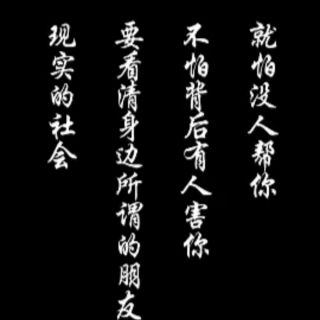 现实的社会
要看清身边所谓的朋友
不怕背后有人害你
就怕没人帮你